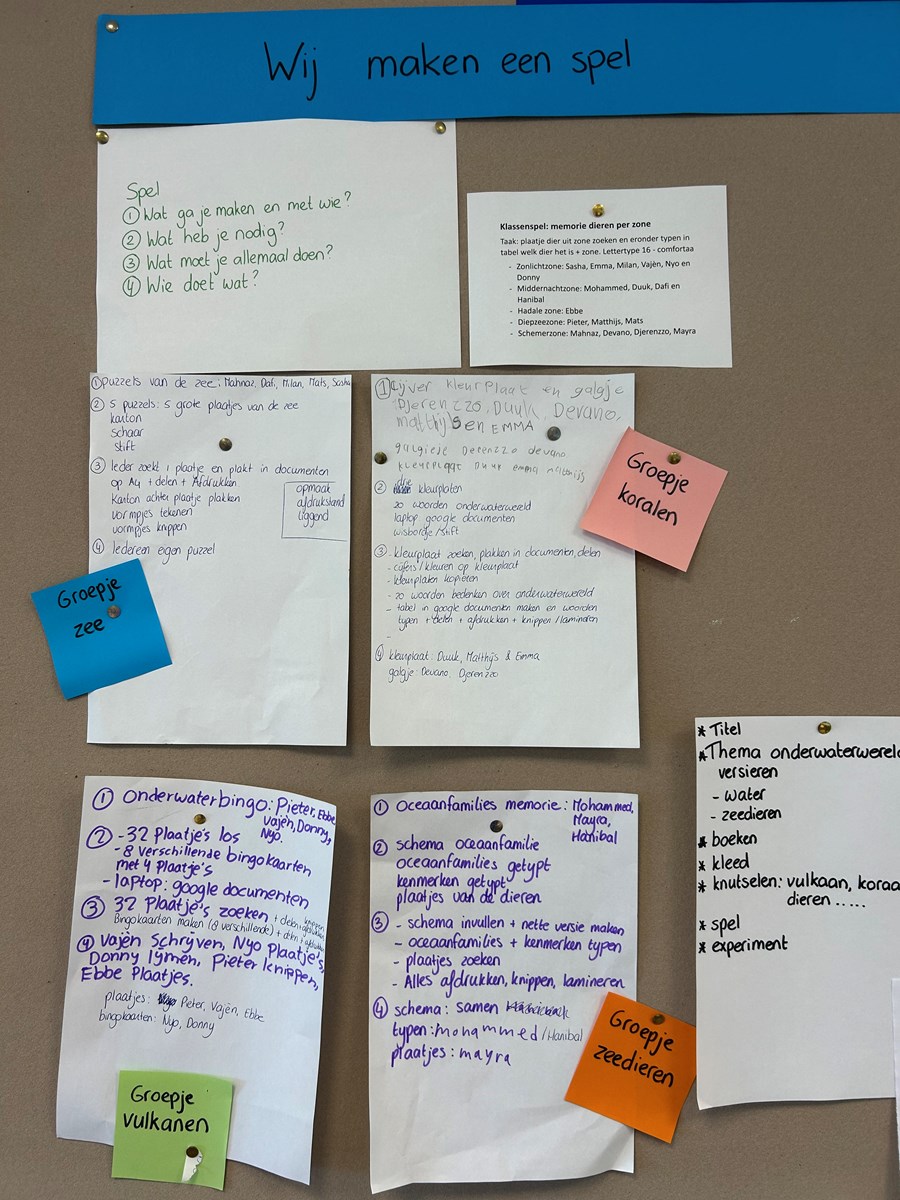 Wij maken een spel
Spel
① Wat ga je maken en met wie?
② Wat heb je nodig?
③ Wat moet je allemaal doen?
④ Wie doet wat?
Klassenspel: memorie dieren per zone
Taak: plaatje dier uit zone zoeken en eronder typen in
tabel welk dier het is + zone. Lettertype 16 - comfortaa
- Zonlichtzone: Sasha, Emma, Milan, Vajèn, Nyo en
Donny
- Middernachtzone: Mohammed, Duuk, Dafi en
Hanibal
- Hadale zone: Ebbe
- Diepzeezone: Pieter, Matthijs, Mats
- Schemerzone: Mahnaz, Devano, Djerenzzo, Mayra
① puzzels van de zee: Mahnaz, Dafi, Milan, Mats, Sasha
② 5 puzzels: 5 grote plaatjes van de zee
karton
schaar
stift
③ Ieder zoekt 1 plaatje en plakt in documenten
op A4 + delen + Afdrukken
Karton achter plaatje plakken
vormpjes tekenen
vormpjes knippen
opmaak
afdrukstand
liggend
④ Iedereen eigen puzzel
Groepje
zee
① Cijver kleurplaat en galgje
Djerenzzo, Duuk, Devano,
matthijs en EMMA
galgieje Derenzzo devano
kleurplaat Duuk emma matthijs
② drie kleurplaten
20 woorden onderwaterwereld
laptop google documenten
wisbordje/stift
③ - kleurplaat zoeken, plakken in documenten, delen
- cijfers/kleuren op kleurplaat
- kleurplaten kopiëren
- 20 woorden bedenken over onderwaterwereld
- tabel in google documenten maken en woorden
typen + delen + afdrukken + knippen/lamineren
-
④ kleurplaat: Duuk, Matthijs & Emma
galgje: Devano, Djerenzzo
Groepje
koralen
① Onderwaterbingo: Pieter, Ebbe
Vajèn, Donny,
Nyo.
② - 32 Plaatje's los
- 8 verschillende bingokaarten
met 4 Plaatje's
- laptop: google documenten
③ 32 Plaatje's zoeken + delen + afdrukken
knippen
Bingokaarten maken (8 verschillende) + delen + afdrukken
④ Vajèn Schrijven, Nyo Plaatje's,
Donny lijmen, Pieter knippen,
Ebbe Plaatjes.
plaatjes: Pieter, Vajèn, Ebbe
bingokaarten: Nyo, Donny
Groepje
vulkanen
① Oceaanfamilies memorie: Mohammed,
Mayra,
Hanibal
② schema oceaanfamilie
oceaanfamilies getypt
kenmerken getypt
plaatjes van de dieren
③ - schema invullen + nette versie maken
- oceaanfamilies + kenmerken typen
- plaatjes zoeken
- Alles afdrukken, knippen, lamineren
④ schema: samen
typen: mohammed/Hanibal
plaatjes: mayra
Groepje
zeedieren
* Titel
* Thema onderwaterwereld
versieren
- water
- zeedieren
* boeken
* kleed
* knutselen: vulkaan, koraa
dieren .....
* spel
* experiment